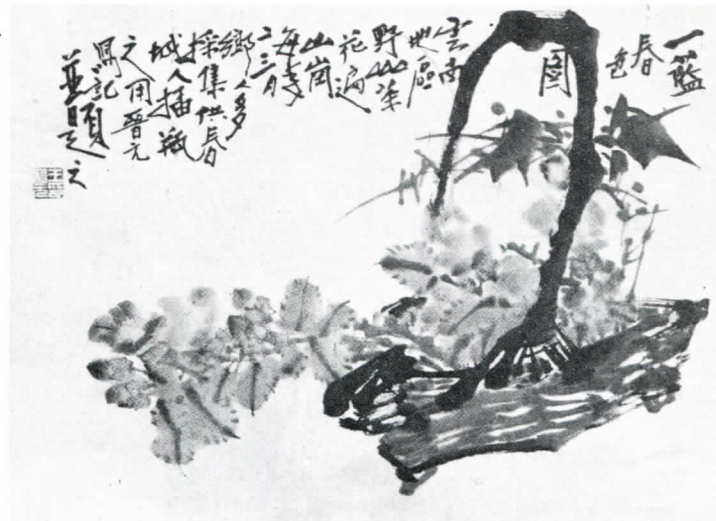 一籃
春色
圖
雲南
地區
野山茶
花遍
山崗
每
二三月
鄉人多
採集供春
城人插瓶
之用晉元
寫記
並題之